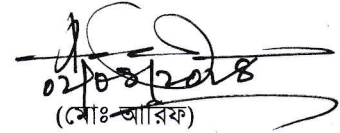 ০২/০৪/২০২৪
(মোঃ আরিফ)